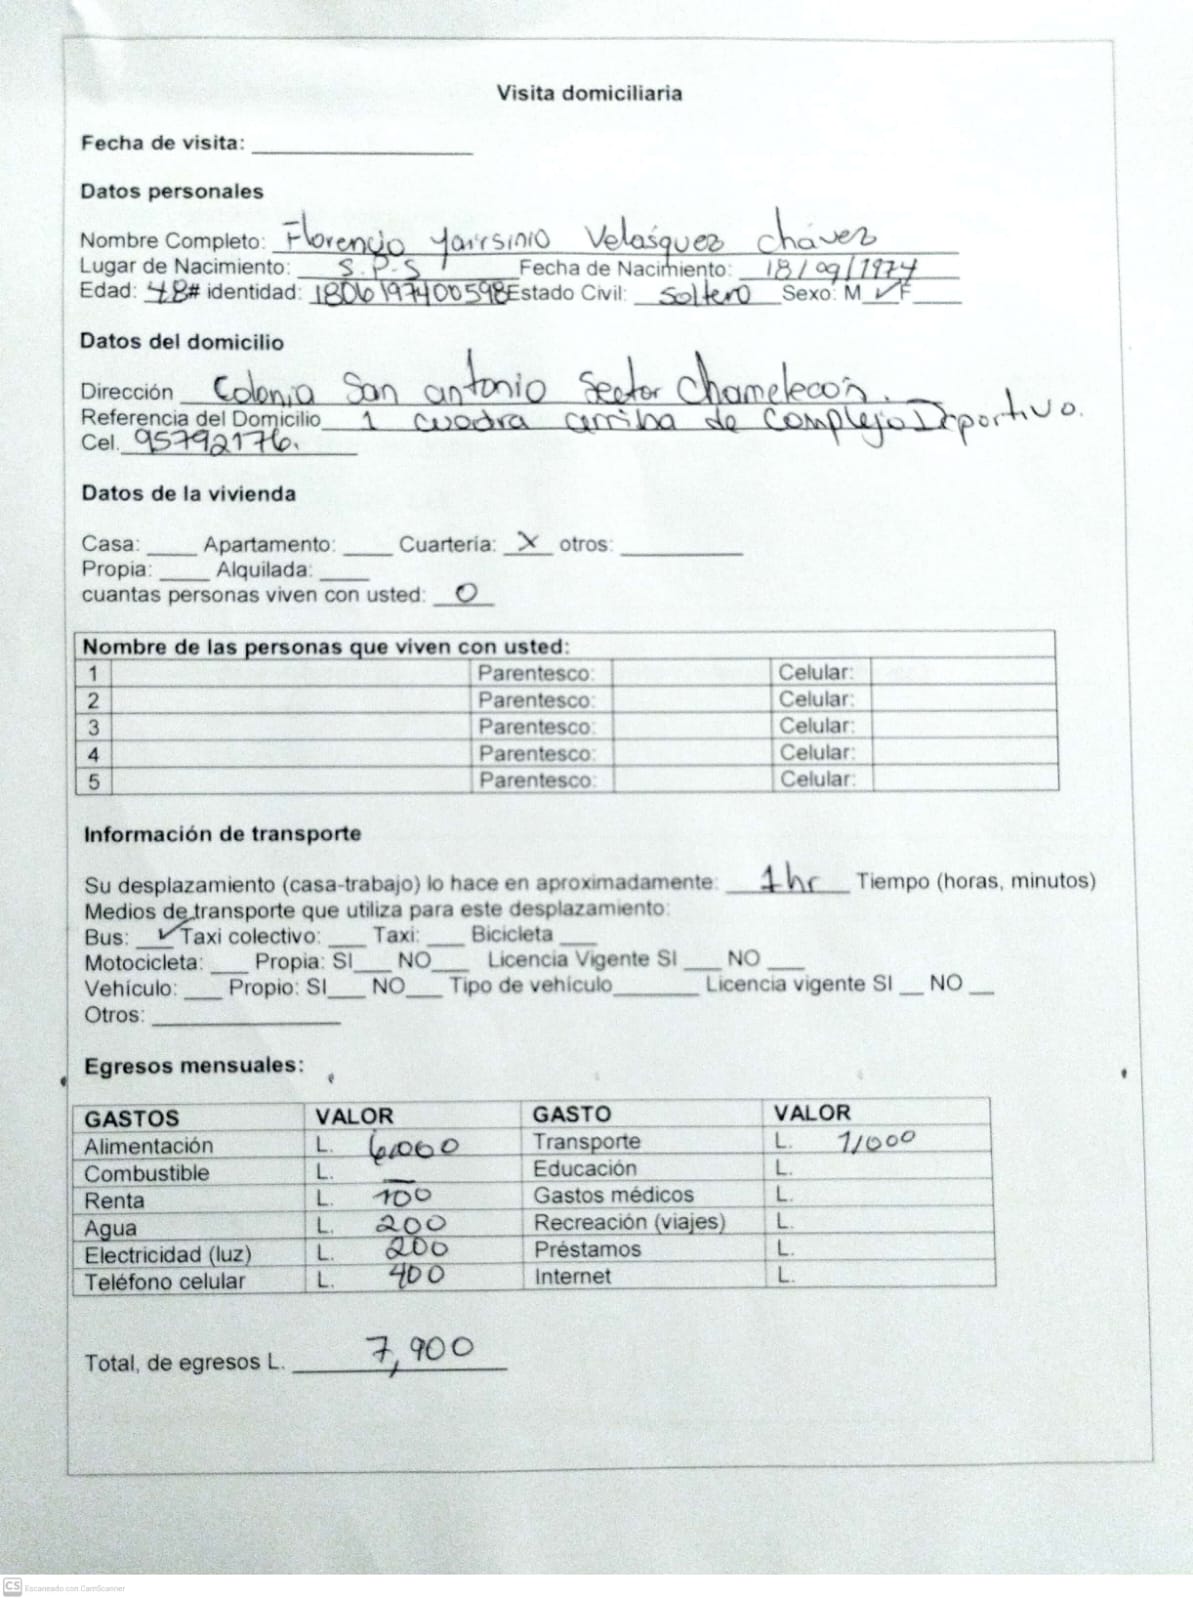 Visita domiciliaria
Fecha de visita: ____
Datos personales
Nombre Completo: Florencio Yarrsinio Velasquez chávez
Lugar de Nacimiento: S.P.S Fecha de Nacimiento: 18/09/1974
Edad: 48 # identidad: 1806197400598 Estado Civil: Soltero Sexo: M ✓ F ____
Datos del domicilio
Dirección Colonia San antonio Sector Chamelecón.
Referencia del Domicilio 1 cuadra arriba de Complejo Deportivo.
Cel. 95792176.
Datos de la vivienda
Casa: ____ Apartamento: ____ Cuarteria: X otros: ____
Propia: ____ Alquilada: ____
cuantas personas viven con usted: 0
Nombre de las personas que viven con usted:
1 Parentesco: Celular:
2 Parentesco: Celular:
3 Parentesco: Celular:
4 Parentesco: Celular:
5 Parentesco: Celular:
Información de transporte
Su desplazamiento (casa-trabajo) lo hace en aproximadamente: 1hr Tiempo (horas, minutos)
Medios de transporte que utiliza para este desplazamiento:
Bus: ✓ Taxi colectivo: ____ Taxi: ____ Bicicleta ____
Motocicleta: ____ Propia: SI ____ NO ____ Licencia Vigente SI ____ NO ____
Vehículo: ____ Propio: SI ____ NO ____ Tipo de vehículo ____ Licencia vigente SI __ NO __
Otros: ____
Egresos mensuales:
GASTOS VALOR GASTO VALOR
Alimentación L. 6,000 Transporte L. 1,000
Combustible L. — Educación L.
Renta L. 100 Gastos médicos L.
Agua L. 200 Recreación (viajes) L.
Electricidad (luz) L. 200 Préstamos L.
Teléfono celular L. 400 Internet L.
Total, de egresos L. 7,900
CS Escaneado con CamScanner